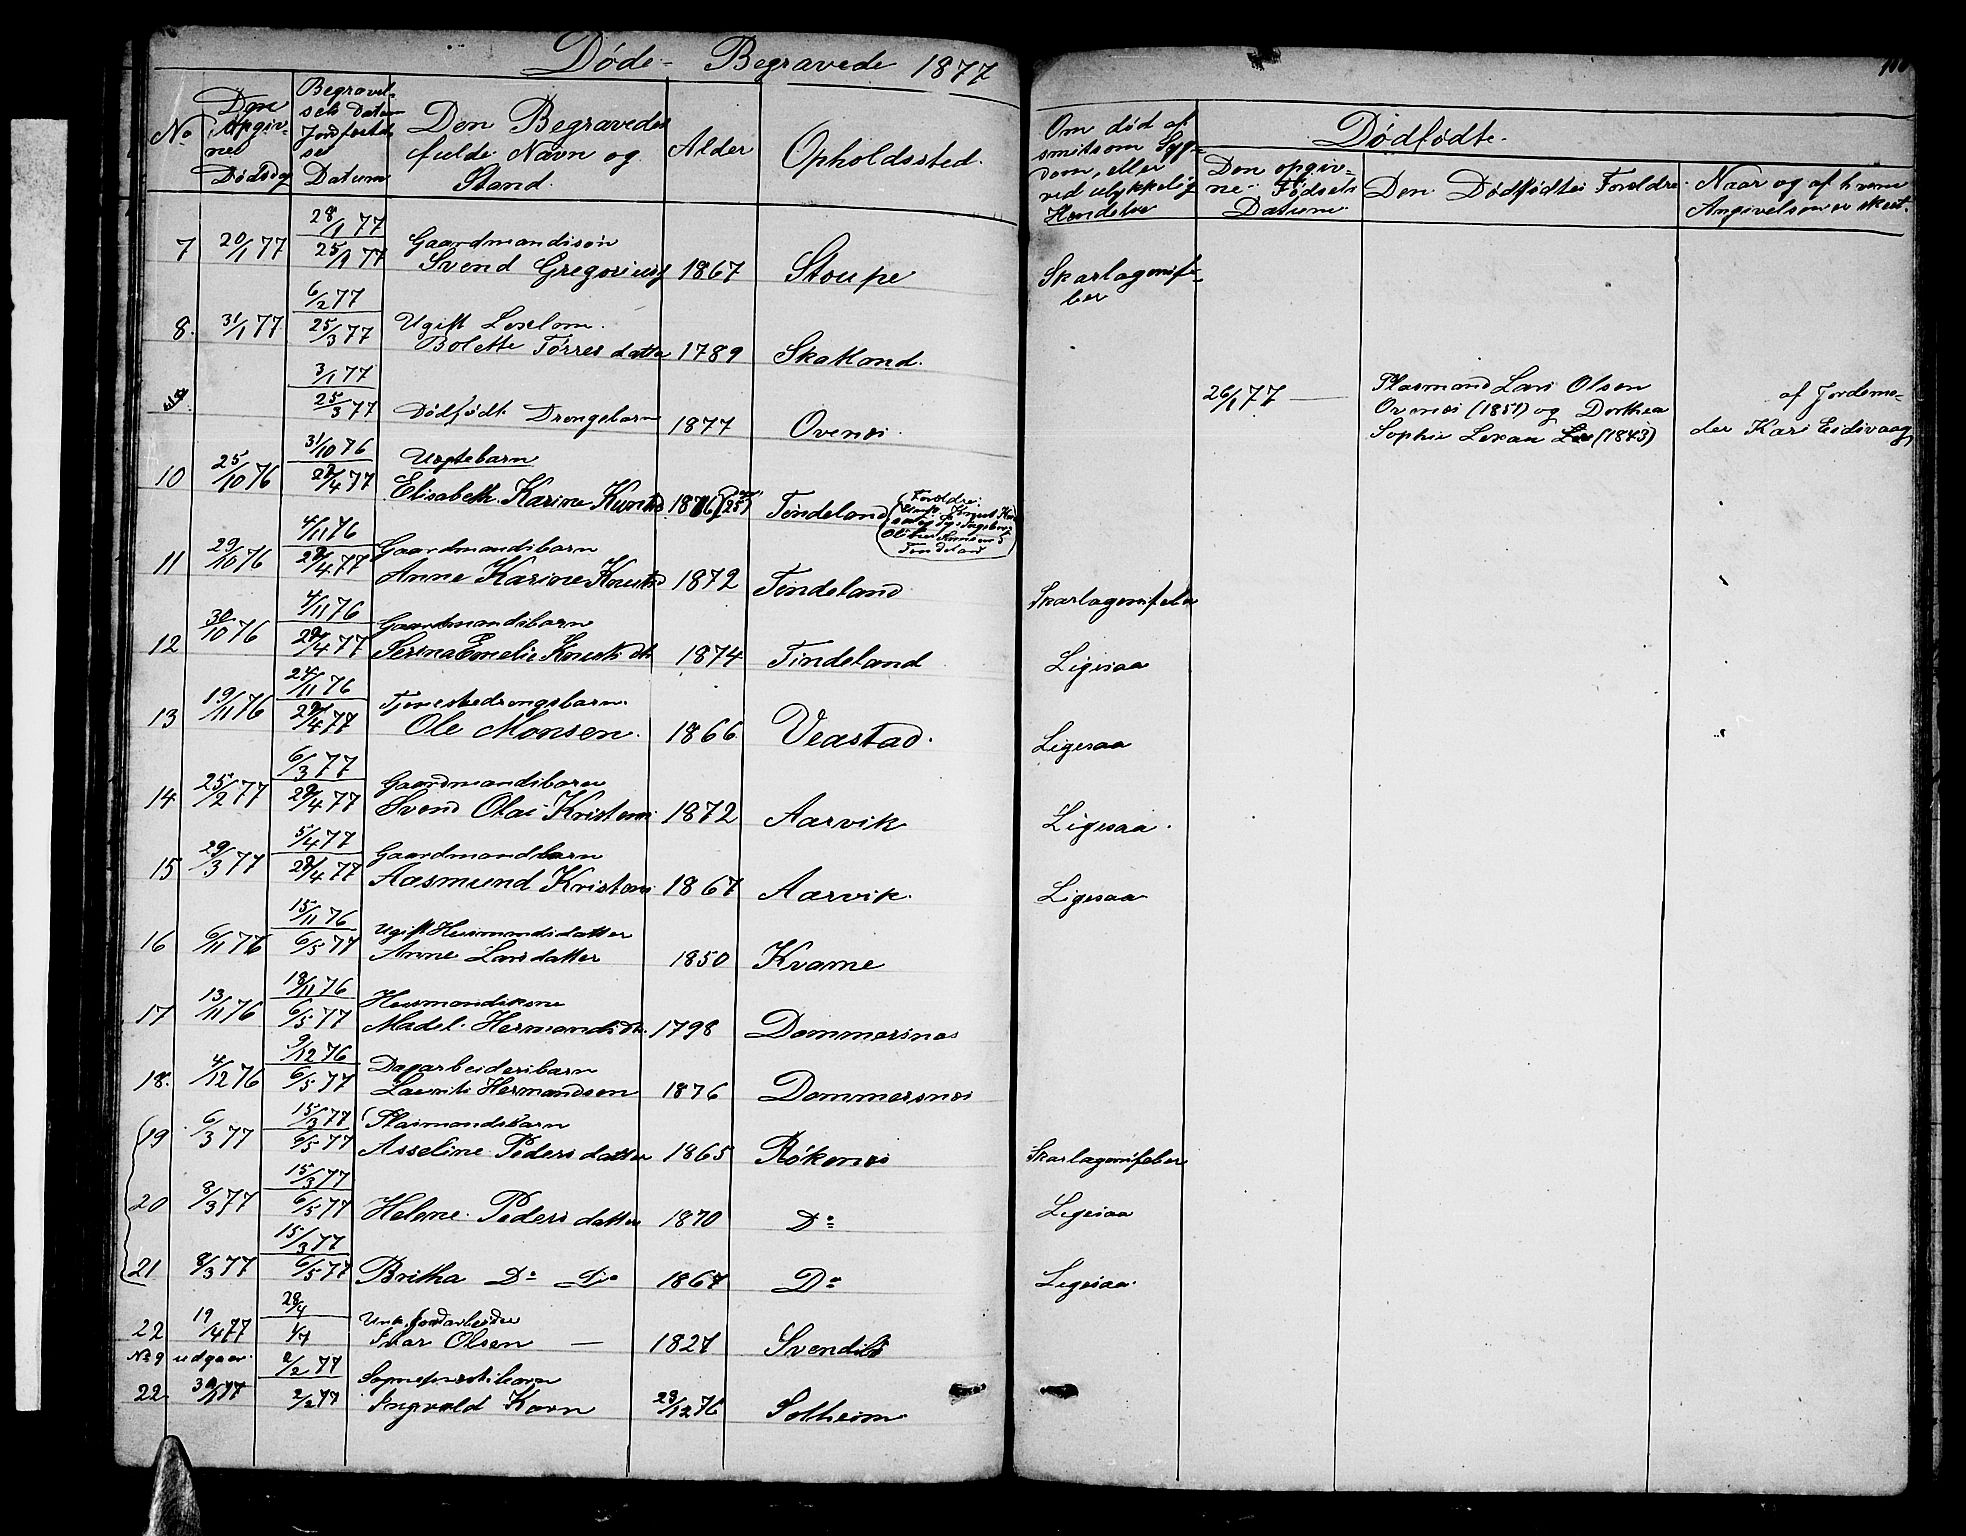 Døde- Begravede 1877
No
Den
opgiv-
ne
Dødsdg
Begravel-
sets Datum
Jordfæstel-
ses
Datum
Den Begravedes
fulde Navn og
Stand.
Alder
Opholdssted.
Om død af
smitsom Syg-
dom, eller
ved ulykkelig
Hendelse
Dødfødte.
Den opgiv-
ne Fødsels
Datum
Den Dødfødtes Foreldre
Naar og af hvem
Angivelsen er skeet.
7 20/1 77 28/1 77 25/3 77 Gaardmandssøn
Svend Gregoriuss 1867 Stoupe Skarlagensfe-
ber
8. 31/1 77 6/2 77 25/3 77 Ugift Loselem.
Bolette Tørresdatter 1789 Skatland.
3/1 77 25/3 77 Dødfødt Drengebarn 1877 Ovenes. 26/1 77 —
Pladsmand Lars Olsen
Ovenes (1851) og Dorthea
Sophie Lexau (1843)
af Jordemo-
der Kari Eidsvaag
10 25/10 76 31/10 76 29/4 77 Uægtebarn
Elisabeth Karine Knutsd 1876 Tindeland
Foreldre:
Tindeland
11 29/10 76 4/11 76 29/4 77 Gaardmandsbarn
Anne Karine Knutsd 1872 Tindeland Skarlagensfeber
12 30/10 76 4/11 76 29/4 77 Gaardmandsbarn
Serina Emelie Knutsdtr 1874 Tindeland Ligesaa
13 19/11 76 24/11 76 29/4 77 Tjenestedrengsbarn.
Ole Monsen. 1866 Veastad. Ligesaa
14 25/2 77 6/3 77 29/4 77 Gaardmandsbarn
Svend Olai Kristens 1872 Aarvik Ligesaa.
15 29/3 77 5/4 77 29/4 77 Gaardmandbarn
Aasmund Kristens 1867 Aarvik. Ligesaa
16 6/11 76 15/11 76 6/5 77 Ugift Husmandsdatter
Anne Larsdatter 1850 Kvame
17 13/11 76 18/11 76 6/5 77 Husmandskone
Madel. Hermandsdtr. 1798 Dommersnes
18. 4/12 76 9/12 76 6/5 77 Dagarbeidersbarn
Laurits Hermandsen 1876 Dommersnes
19 6/3 77 15/3 77 6/5 77 Pladsmandsbarn
Asseline Pedersdatter 1865 Røkenes Skarlagensfeber
20 8/3 77 15/3 77 6/5 77 Helene Pedersdatter 1870 Do Ligesaa
21 8/3 77 15/3 77 6/5 77 Britha Do Do 1867 Do Ligesaa.
22 19/4 77 28/4 1/7 Unk. Jordarbeider
Ivar Olsen — 1827 Svendsbø
No 9 udgaar.
22 30/1 77 2/2 77 2/2 77 Sogneprestsbarn
Ingvald Korn 23/12 76 Solheim.